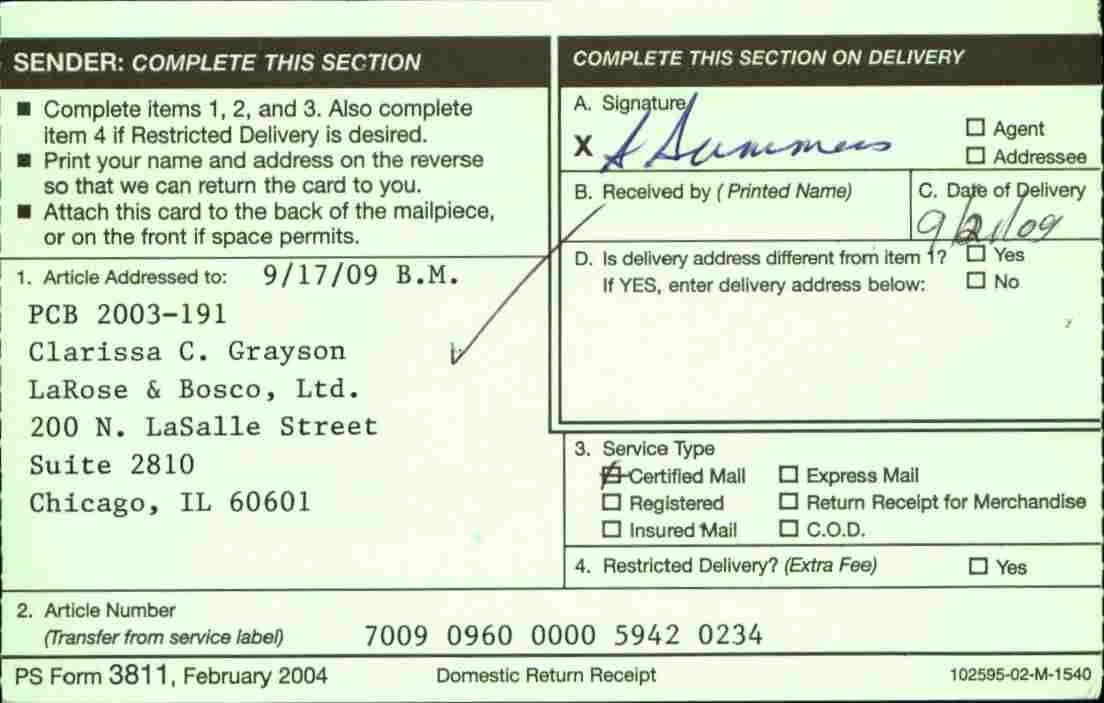 SENDER: COMPLETE THIS SECTION
■ Complete items 1, 2, and 3. Also complete
item 4 if Restricted Delivery is desired.
■ Print your name and address on the reverse
so that we can return the card to you.
■ Attach this card to the back of the mailpiece,
or on the front if space permits.
1. Article Addressed to: 9/17/09 B.M.
PCB 2003-191
Clarissa C. Grayson
LaRose & Bosco, Ltd.
200 N. LaSalle Street
Suite 2810
Chicago, IL 60601
COMPLETE THIS SECTION ON DELIVERY
A. Signature
X S Summers
☐ Agent
☐ Addressee
B. Received by ( Printed Name)
C. Date of Delivery
9/21/09
D. Is delivery address different from item 1? ☐ Yes
If YES, enter delivery address below: ☐ No
3. Service Type
☒ Certified Mail ☐ Express Mail
☐ Registered ☐ Return Receipt for Merchandise
☐ Insured Mail ☐ C.O.D.
4. Restricted Delivery? (Extra Fee) ☐ Yes
2. Article Number
(Transfer from service label) 7009 0960 0000 5942 0234
PS Form 3811, February 2004 Domestic Return Receipt 102595-02-M-1540